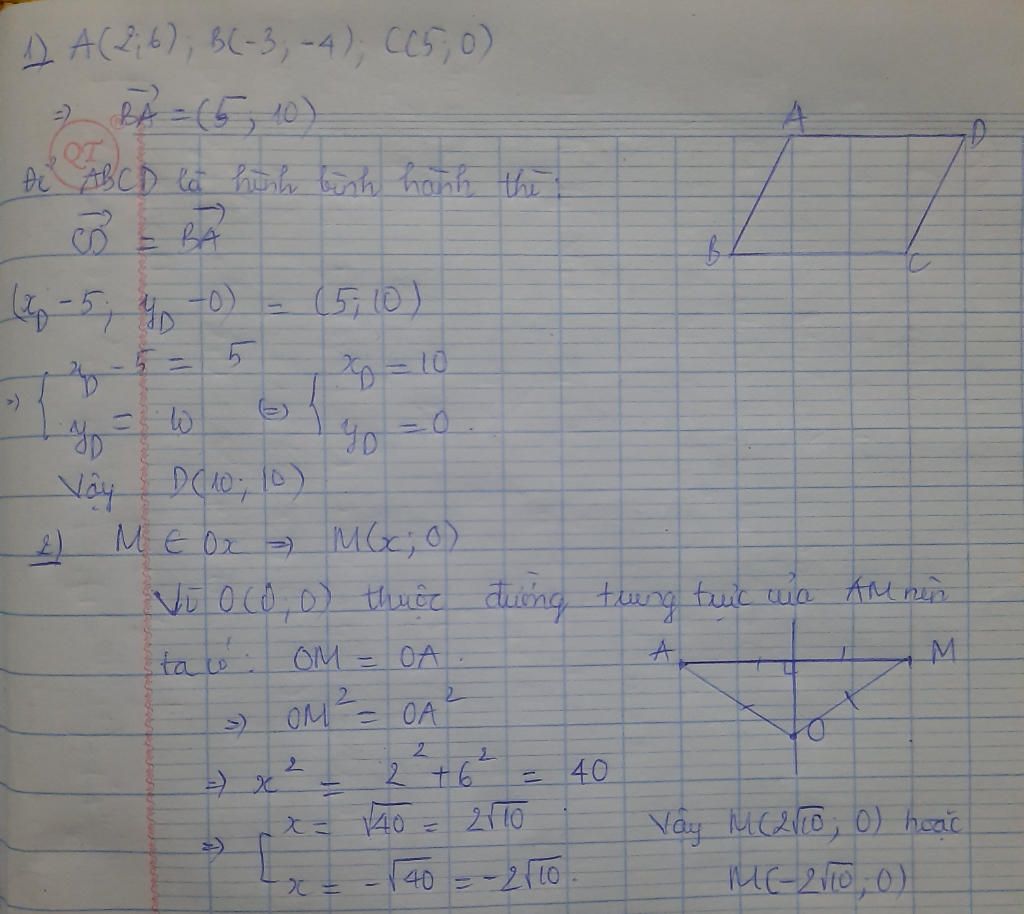 1) A(2;6); B(-3;-4); C(5;0)
=> BA = (5; 10)
QT
Để ABCD là hình bình hành thì:
CD = BA
A D
B C
(x_D - 5; y_D - 0) = (5; 10)
=> { x_D - 5 = 5 { x_D = 10
y_D = 10 <=> y_D = 0.
Vậy D(10; 10)
2) M ∈ Ox => M(x; 0)
Vì O(0; 0) thuộc đường trung trực của AM nên
ta có: OM = OA.
A M
O
=> OM² = OA²
=> x² = 2² + 6² = 40
=> [ x = √40 = 2√10
x = -√40 = -2√10.
Vậy M(2√10; 0) hoặc
M(-2√10; 0)